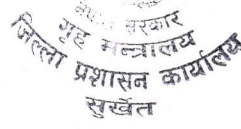 सरकार
गृह मन्त्रालय
जिल्ला प्रशासन कार्यालय
सुर्खेत